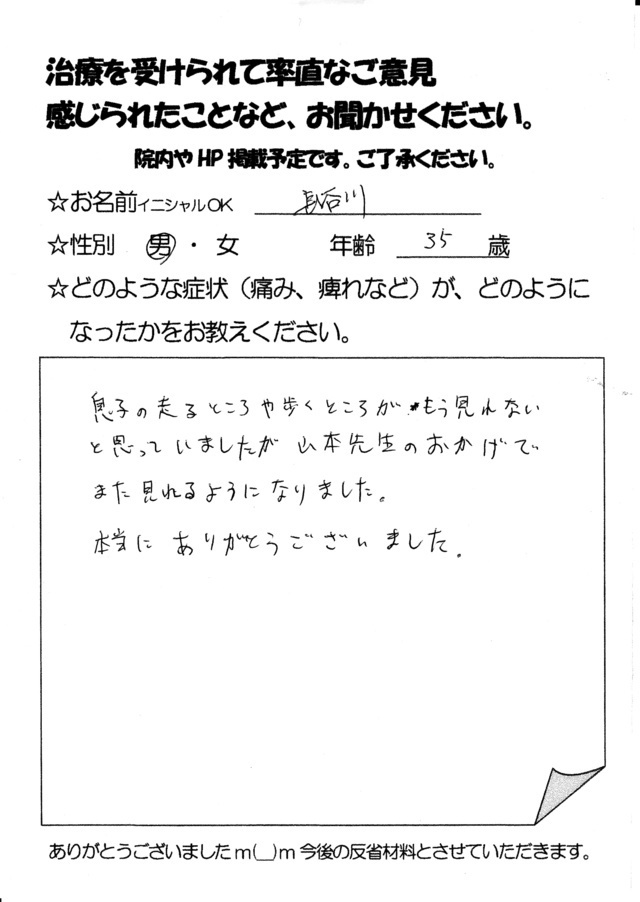 治療を受けられて率直なご意見
感じられたことなど、お聞かせください。
院内やHP掲載予定です。ご了承ください。
☆お名前イニシャルOK 長谷川
☆性別 男・女 年齢 35 歳
☆どのような症状（痛み、痺れなど）が、どのように
なったかをお教えください。
息子の走るところや歩くところがもう見れない
と思っていましたが山本先生のおかげで
また見れるようになりました。
本当にありがとうございました。
ありがとうございましたm(__)m今後の反省材料とさせていただきます。